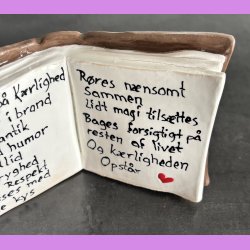 på Kærlighed
i brand
antik
humor
tillid
tryghed
Respekt
med
kys
Røres nænsomt
sammen
lidt magi tilsættes
Bages forsigtigt på
resten af livet
Og kærligheden
Opstår